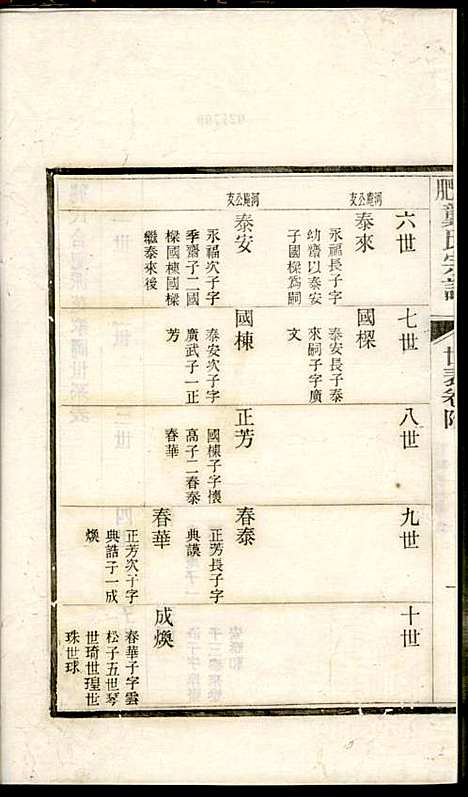 肥龔氏宗譜
世表卷附
六世
河庭公支
泰來
永福長子字
幼齋以泰安
子國樑為嗣
河庭公支
泰安
永福次子字
季齋子二國
樑國棟國樑
繼泰來後
七世
國樑
泰安長子泰
來嗣子字廣
文
國棟
泰安次子字
廣武子一正
芳
八世
正芳
國棟子字懷
高子二春泰
春華
九世
春泰
正芳長子字
典謨
春華
正芳次子字
典誥子一成
煥
十世
成煥
春華子字雲
松子五世琴
世琦世瑝世
珠世球